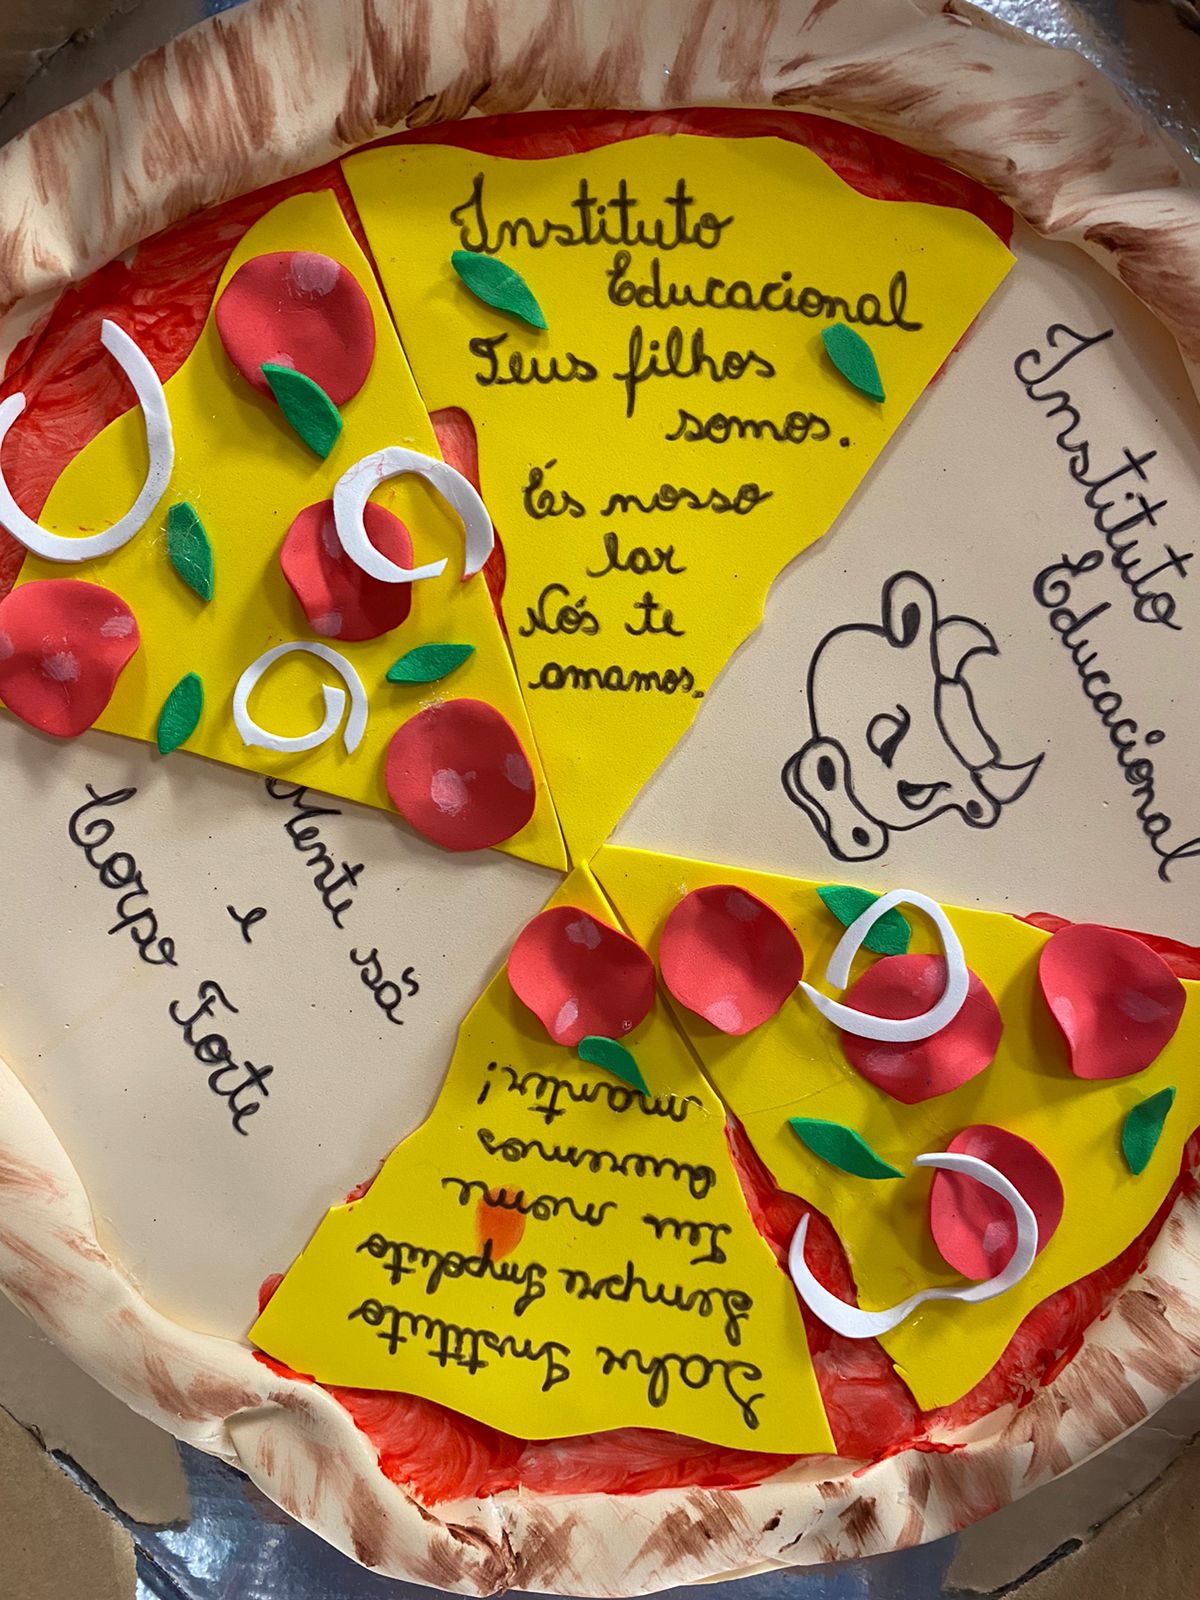 Instituto
Educacional
Teus filhos
somos.
És nosso
lar
Nós te
amamos.
Instituto
Educacional
Mente sã
e
Corpo Forte
Salve Instituto
Sempre Impoluto
Teu nome
queremos
manter!